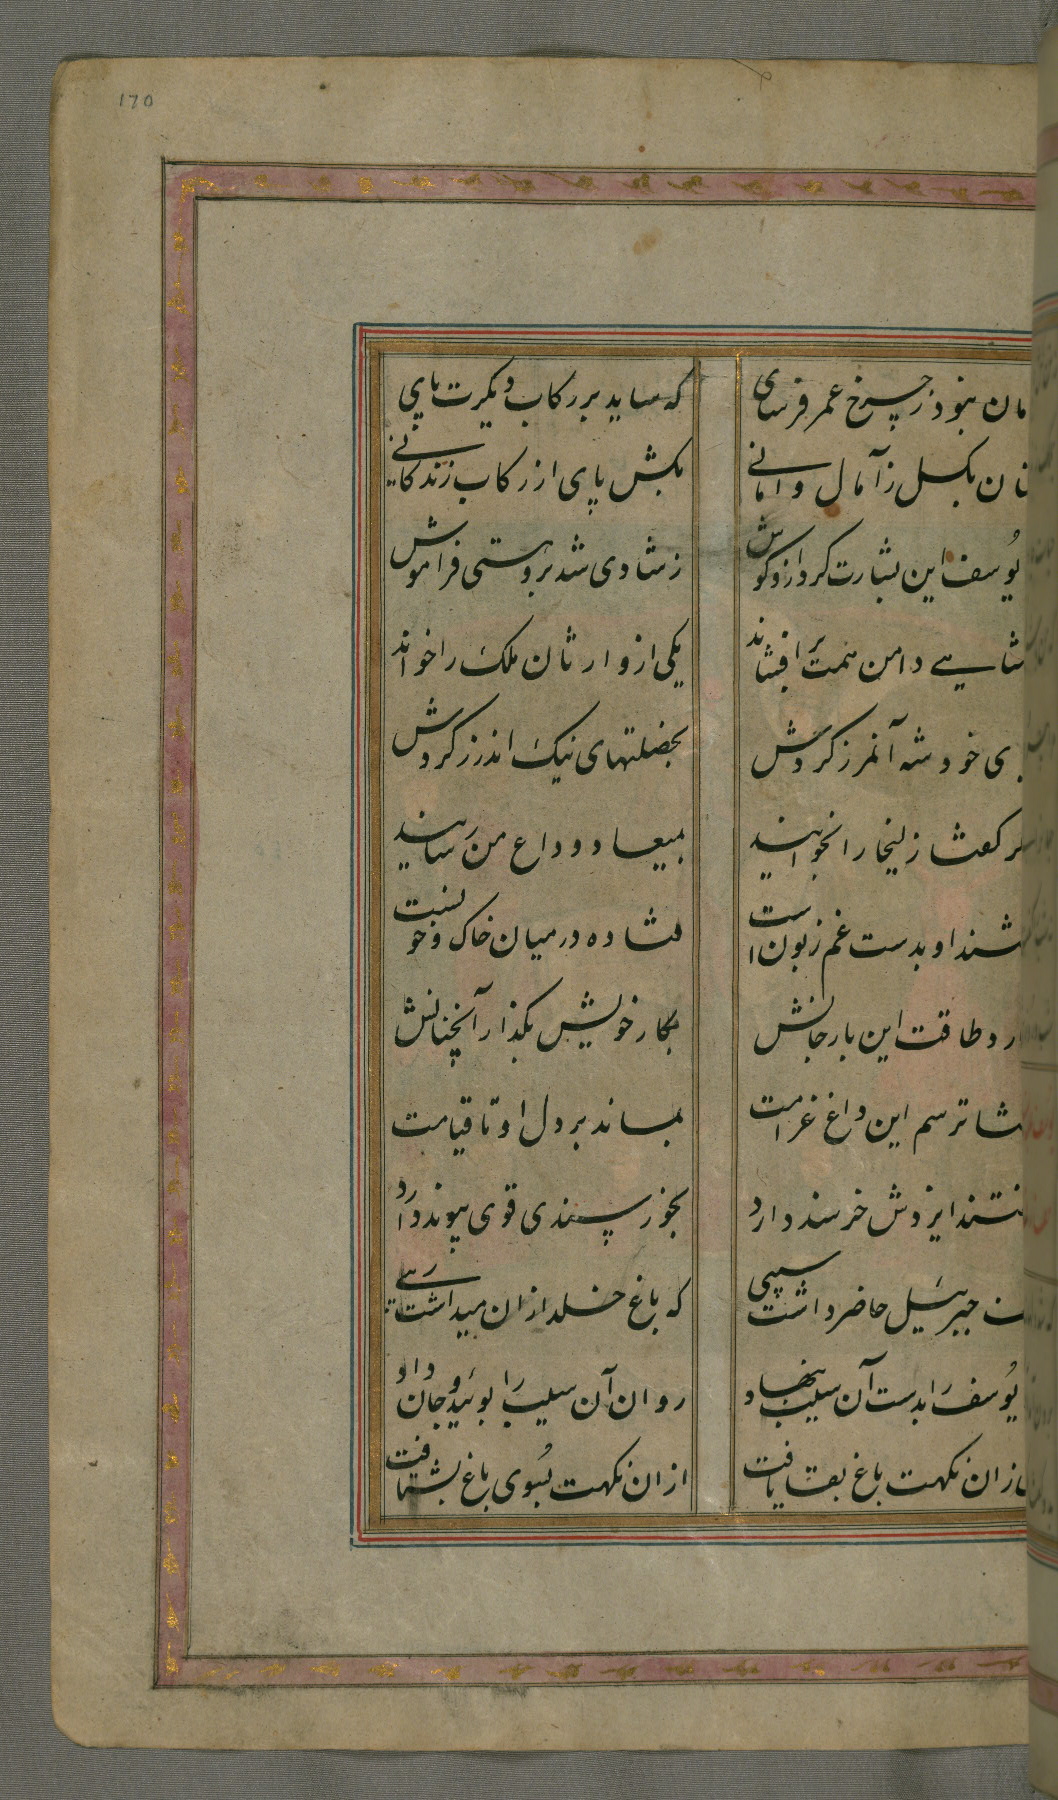 170
مان نبود ز چرخ عمر فرسای
که ساید بر رکاب دیگرت پای
عنان بگسل ز آمال و امانی
بکش پای از رکاب زندگانی
یوسف این بشارت کرد ازو گوش
ز شادی شد برو هستی فراموش
شاهی دامن همت بر افشاند
یکی از وارثان ملک را خواند
ی خود شه آنمرز کردش
بخصلتهای نیک اندرز کردش
گر کفتا زلیخا را بخوانید
بمیعاد وداع من رسانید
او بدست غم زبون است
فتاده در میان خاک و خونست
رد طاقت این بار جانش
بکار خویش بگذار آنچنانش
ترسم این داغ غرامت
بماند بر دل او تا قیامت
ایزدش خرسند دارد
بخورسندی قوی پیوند دارد
جبرئیل حاضر داشت سیبی
که باغ خلد ازان میداشت زیبی
یوسف را بدست آن سیب بنهاد
روان آن سیب را بوئید و جان داد
ازان نکهت باغ بقا یافت
ازان نکهت بسوی باغ بشتافت